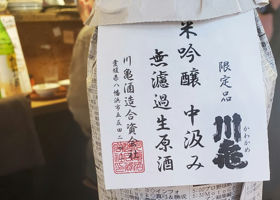 限定品
川亀
かわかめ
米吟醸 中汲み
無濾過生原酒
川亀酒造合資会社
愛媛県八幡浜市五反田二